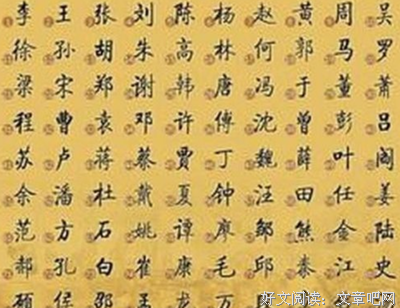 李 王 张 刘 陈 杨 赵 黄 周 吴
徐 孙 胡 朱 高 林 何 郭 马 罗
梁 宋 郑 谢 韩 唐 冯 于 董 萧
程 曹 袁 邓 许 傅 沈 曾 彭 吕
苏 卢 蒋 蔡 贾 丁 魏 薛 叶 阎
余 潘 杜 戴 夏 钟 汪 田 任 姜
范 方 石 姚 谭 廖 邹 熊 金 陆
郝 孔 白 崔 康 毛 邱 秦 江 史
侯 邵 龙 万
好文阅读：文章吧网